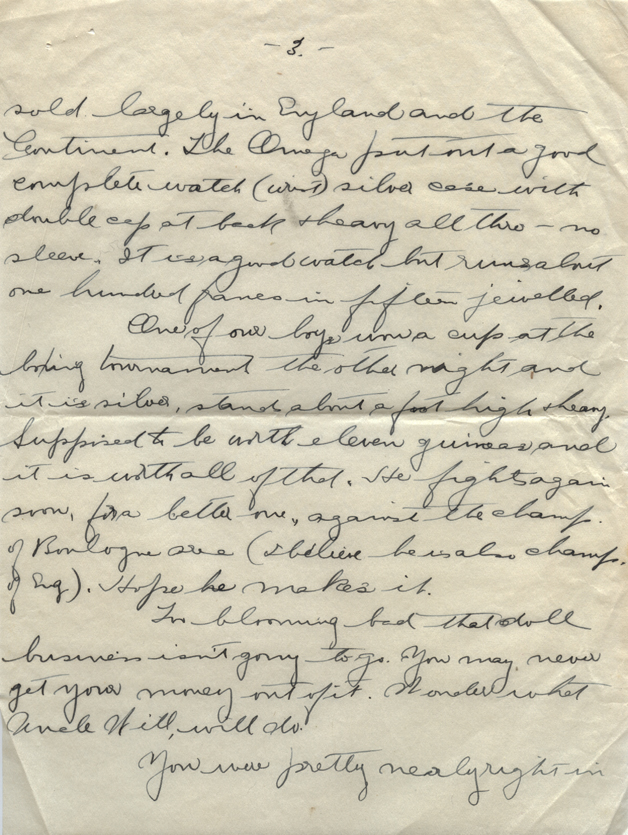 - 3. -
sold largely in England and the
Continent. The Omega put out a good
complete watch (wrist) silver case with
double cap at back & heavy all thro - no
sleeve. It is a good watch but runs about
one hundred francs in fifteen jewelled.
One of our boys won a cup at the
boxing tournament the other night and
it is silver, stands about a foot high & heavy.
Supposed to be worth eleven guineas and
it is worth all of that. He fights again
soon, for a better one, against the champ.
of Boulogne area (I believe he is also champ.
of Eng). Hope he makes it.
Too blooming bad that doll
business isn't going to go. You may never
get your money out of it. Wonder what
Uncle Will, will do.
You were pretty nearly right in